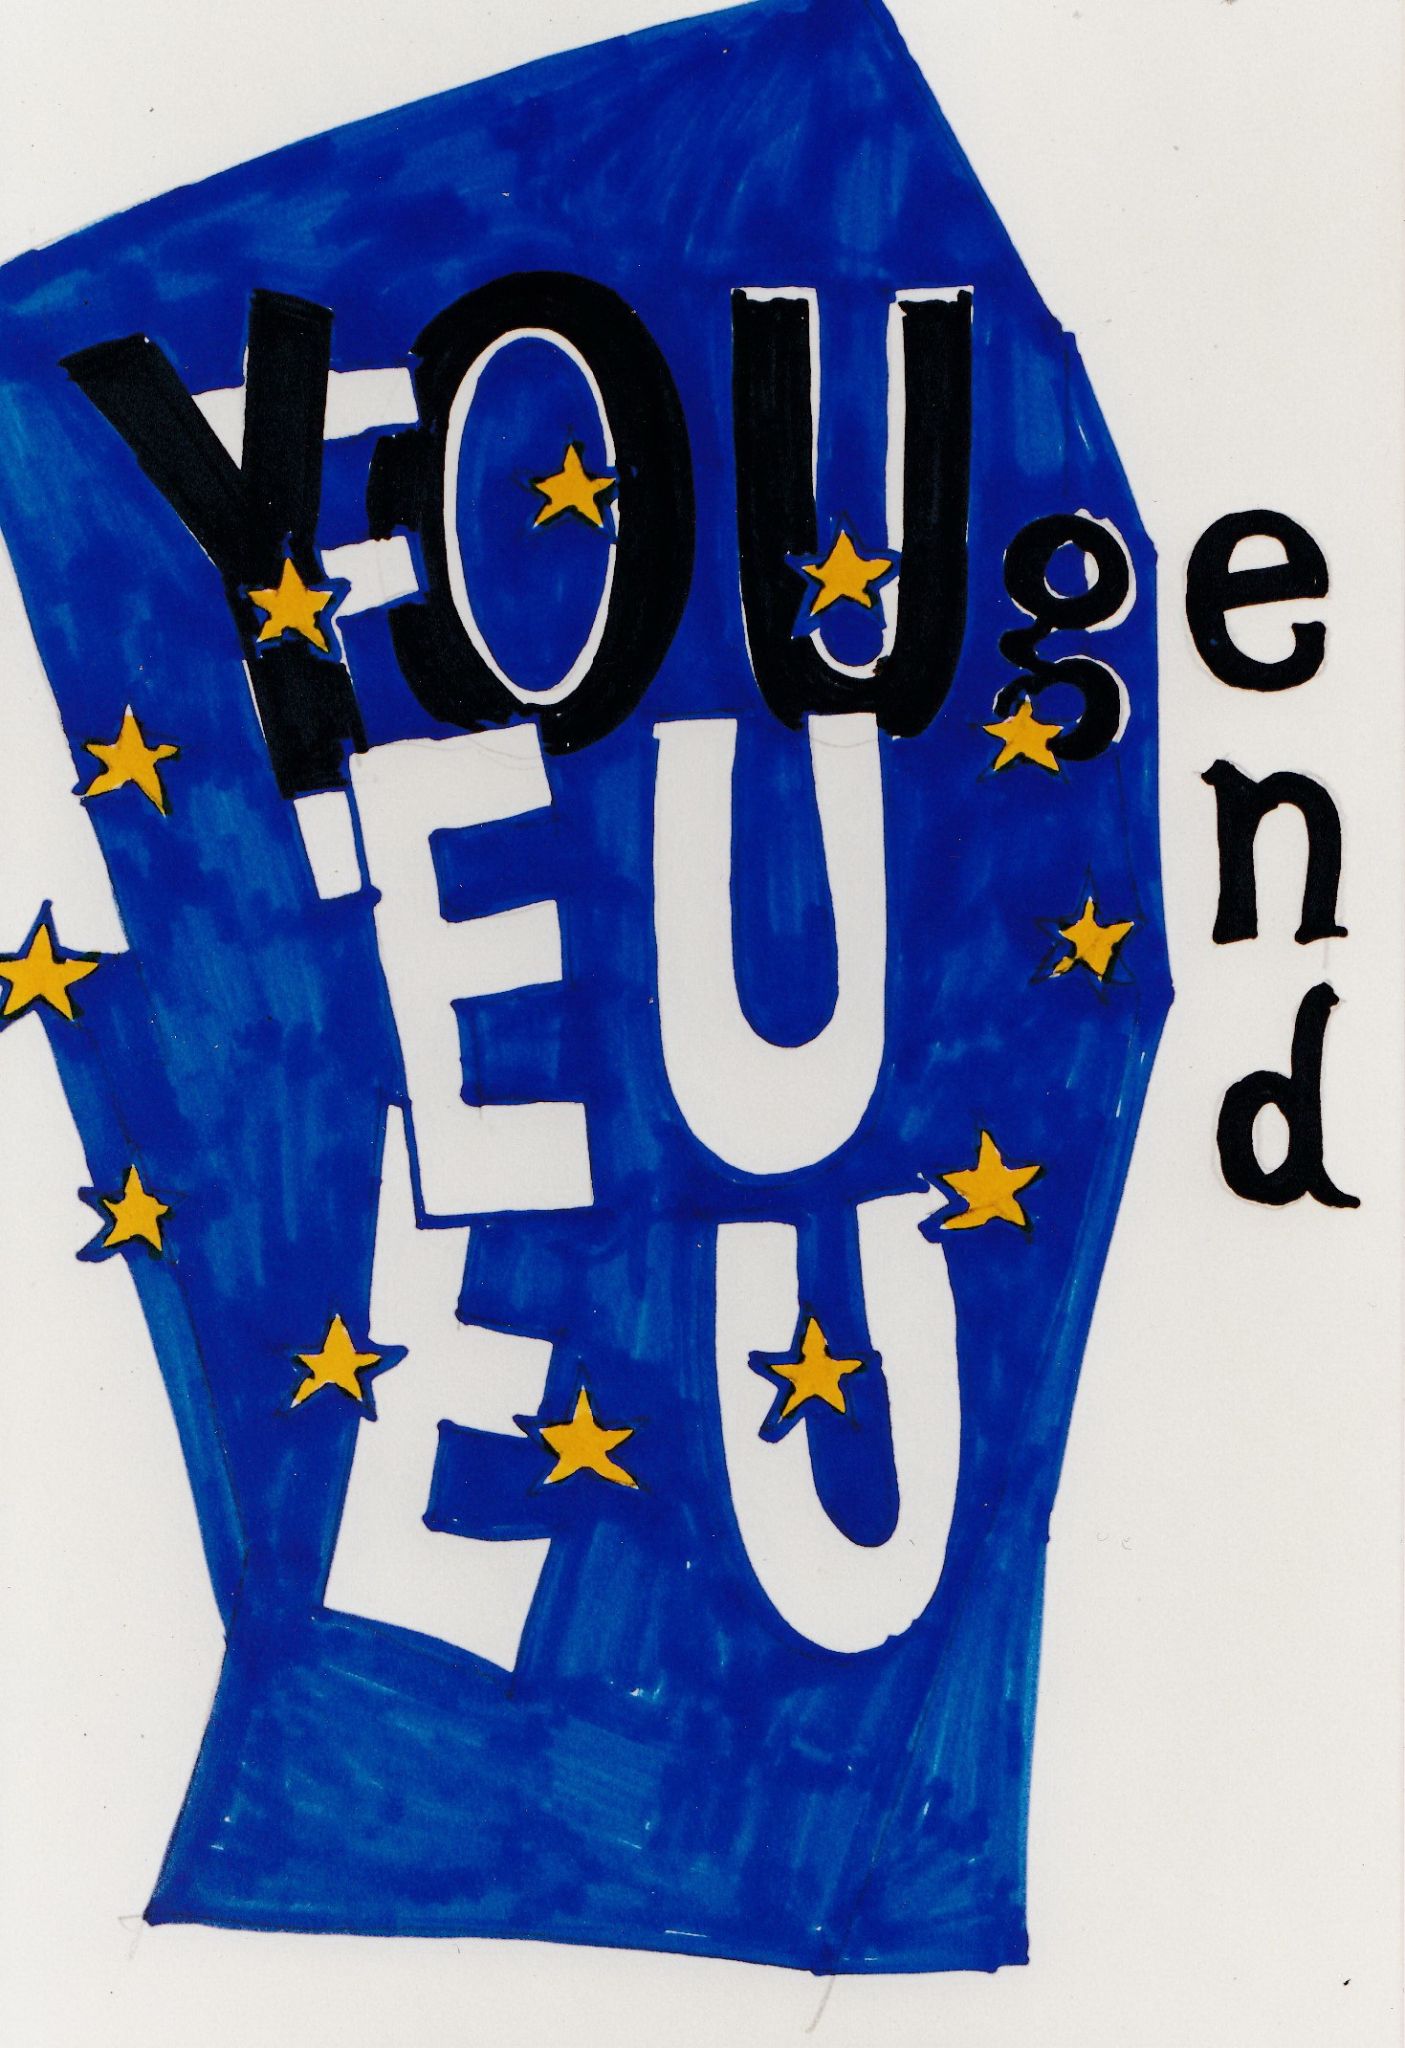 YOUgend
EU
EU